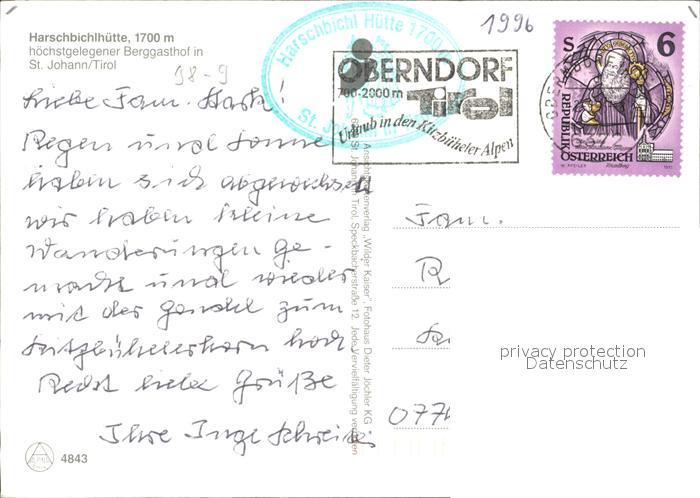 Harschbichlhütte, 1700 m
höchstgelegener Berggasthof in
St. Johann/Tirol
98-9
1996
Harschbichl Hütte 1700
St. Jo
OBERNDORF
700-2000 m Tirol
Urlaub in den Kitzbüheler Alpen
S 6
REPUBLIK
ÖSTERREICH
Liebe Fam.
Regen und Sonne
haben sich abgewechselt
wir haben kleine
Wanderungen ge-
macht und wieder
mit der Gondel zum
Kitzbühelerhorn hoch
Recht liebe Grüße
Ihre Inge
Ansichtskartenverlag „Wilder Kaiser", Fotohaus Dieter Jöchler KG
St. Johann in Tirol, Speckbacherstraße 12. Jede Vervielfältigung verboten
Fam.
R
077
privacy protection
Datenschutz
4843